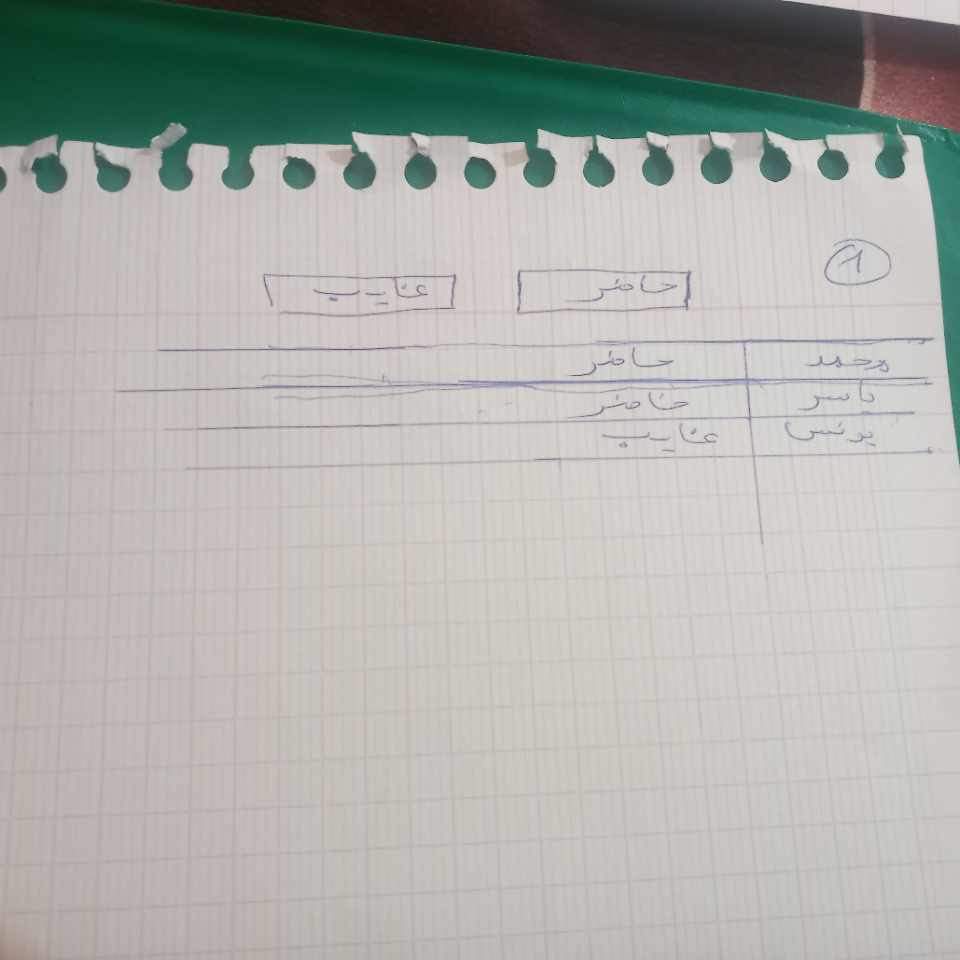 1
حاضر غايب
محمد حاضر
ياسر حاضر
يونس غايب